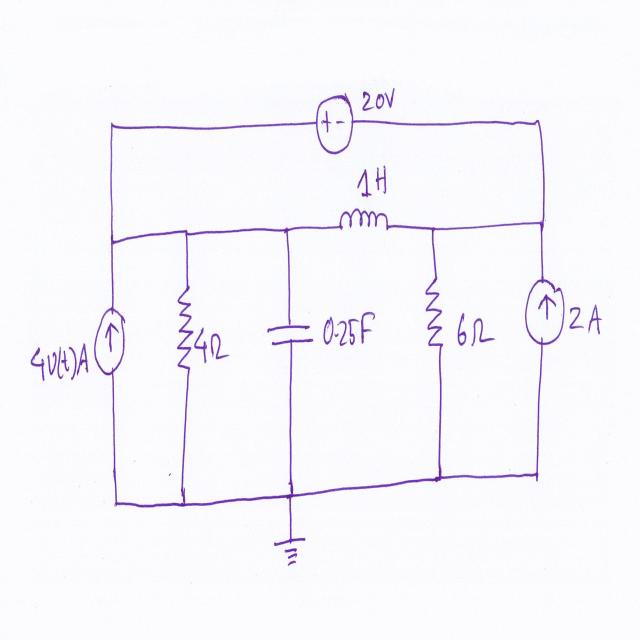 20V
+-
1H
4u(t)A
4Ω
0.25F
6Ω
2A